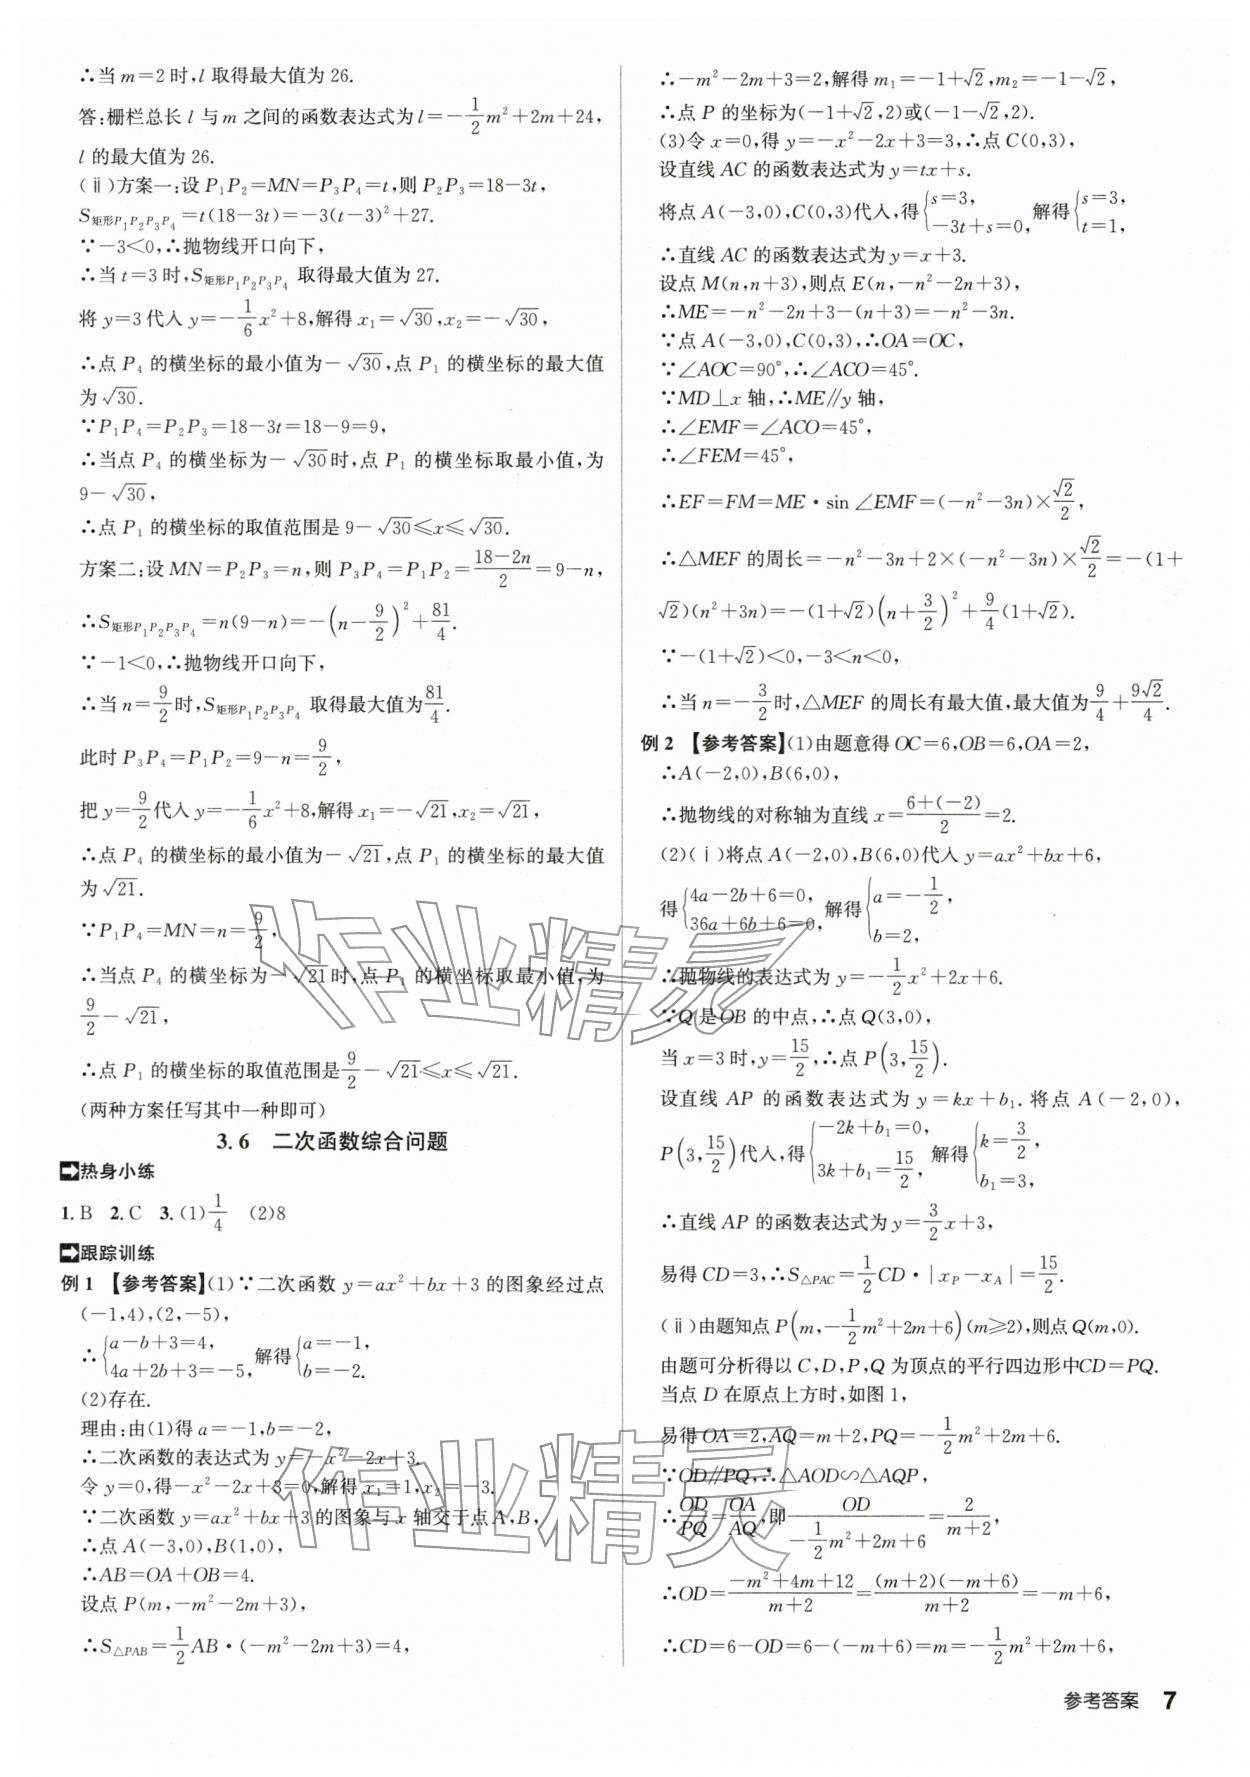 ∴当 m=2 时,l 取得最大值为 26.
答:栅栏总长 l 与 m 之间的函数表达式为 l=-\frac{1}{2}m²+2m+24,
l 的最大值为 26.
(ⅱ)方案一:设 P₁P₂=MN=P₃P₄=t,则 P₂P₃=18-3t,
S矩形P₁P₂P₃P₄=t(18-3t)=-3(t-3)²+27.
∵-3<0,∴抛物线开口向下,
∴当 t=3 时,S矩形P₁P₂P₃P₄ 取得最大值为 27.
将 y=3 代入 y=-\frac{1}{6}x²+8,解得 x₁=√30,x₂=-√30,
∴点 P₄ 的横坐标的最小值为-√30,点 P₁ 的横坐标的最大值
为√30.
∵P₁P₄=P₂P₃=18-3t=18-9=9,
∴当点 P₄ 的横坐标为-√30时,点 P₁ 的横坐标取最小值,为
9-√30,
∴点 P₁ 的横坐标的取值范围是 9-√30≤x≤√30.
方案二:设 MN=P₂P₃=n,则 P₃P₄=P₁P₂=\frac{18-2n}{2}=9-n,
∴S矩形P₁P₂P₃P₄=n(9-n)=-(n-\frac{9}{2})²+\frac{81}{4}.
∵-1<0,∴抛物线开口向下,
∴当 n=\frac{9}{2}时,S矩形P₁P₂P₃P₄ 取得最大值为\frac{81}{4}.
此时 P₃P₄=P₁P₂=9-n=\frac{9}{2},
把 y=\frac{9}{2}代入 y=-\frac{1}{6}x²+8,解得 x₁=-√21,x₂=√21,
∴点 P₄ 的横坐标的最小值为-√21,点 P₁ 的横坐标的最大值
为√21.
∵P₁P₄=MN=n=\frac{9}{2},
∴当点 P₄ 的横坐标为-√21时,点 P₁ 的横坐标取最小值,为
\frac{9}{2}-√21,
∴点 P₁ 的横坐标的取值范围是\frac{9}{2}-√21≤x≤√21.
(两种方案任写其中一种即可)
3.6 二次函数综合问题
热身小练
1. B 2. C 3. (1)\frac{1}{4} (2)8
跟踪训练
例 1 【参考答案】(1)∵二次函数 y=ax²+bx+3 的图象经过点
(-1,4),(2,-5),
∴{a-b+3=4, 4a+2b+3=-5, 解得{a=-1, b=-2.
(2)存在.
理由:由(1)得 a=-1,b=-2,
∴二次函数的表达式为 y=-x²-2x+3.
令 y=0,得-x²-2x+3=0,解得 x₁=1,x₂=-3.
∵二次函数 y=ax²+bx+3 的图象与 x 轴交于点 A,B,
∴点 A(-3,0),B(1,0),
∴AB=OA+OB=4.
设点 P(m,-m²-2m+3),
∴S△PAB=\frac{1}{2}AB·(-m²-2m+3)=4,
∴-m²-2m+3=2,解得 m₁=-1+√2,m₂=-1-√2,
∴点 P 的坐标为(-1+√2,2)或(-1-√2,2).
(3)令 x=0,得 y=-x²-2x+3=3,∴点 C(0,3),
设直线 AC 的函数表达式为 y=tx+s.
将点 A(-3,0),C(0,3)代入,得{s=3, -3t+s=0, 解得{s=3, t=1,
∴直线 AC 的函数表达式为 y=x+3.
设点 M(n,n+3),则点 E(n,-n²-2n+3),
∴ME=-n²-2n+3-(n+3)=-n²-3n.
∵点 A(-3,0),C(0,3),∴OA=OC,
∵∠AOC=90°,∴∠ACO=45°.
∵MD⊥x 轴,∴ME∥y 轴,
∴∠EMF=∠ACO=45°,
∴∠FEM=45°,
∴EF=FM=ME·sin ∠EMF=(-n²-3n)×\frac{√2}{2},
∴△MEF 的周长=-n²-3n+2×(-n²-3n)×\frac{√2}{2}=-(1+
√2)(n²+3n)=-(1+√2)(n+\frac{3}{2})²+\frac{9}{4}(1+√2).
∵-(1+√2)<0,-3<n<0,
∴当 n=-\frac{3}{2}时,△MEF 的周长有最大值,最大值为\frac{9}{4}+\frac{9√2}{4}.
例 2 【参考答案】(1)由题意得 OC=6,OB=6,OA=2,
∴A(-2,0),B(6,0),
∴抛物线的对称轴为直线 x=\frac{6+(-2)}{2}=2.
(2)(ⅰ)将点 A(-2,0),B(6,0)代入 y=ax²+bx+6,
得{4a-2b+6=0, 36a+6b+6=0, 解得{a=-\frac{1}{2}, b=2,
∴抛物线的表达式为 y=-\frac{1}{2}x²+2x+6.
∵Q 是 OB 的中点,∴点 Q(3,0),
当 x=3 时,y=\frac{15}{2},∴点 P(3,\frac{15}{2}).
设直线 AP 的函数表达式为 y=kx+b₁. 将点 A(-2,0),
P(3,\frac{15}{2})代入,得{-2k+b₁=0, 3k+b₁=\frac{15}{2}, 解得{k=\frac{3}{2}, b₁=3,
∴直线 AP 的函数表达式为 y=\frac{3}{2}x+3,
易得 CD=3,∴S△PAC=\frac{1}{2}CD·|xP-xA|=\frac{15}{2}.
(ⅱ)由题知点 P(m,-\frac{1}{2}m²+2m+6)(m≥2),则点 Q(m,0).
由题可分析得以 C,D,P,Q 为顶点的平行四边形中CD=PQ.
当点 D 在原点上方时,如图 1,
易得 OA=2,AQ=m+2,PQ=-\frac{1}{2}m²+2m+6.
∵OD∥PQ,∴△AOD∽△AQP,
∴\frac{OD}{PQ}=\frac{OA}{AQ},即\frac{OD}{-\frac{1}{2}m²+2m+6}=\frac{2}{m+2},
∴OD=\frac{-m²+4m+12}{m+2}=\frac{(m+2)(-m+6)}{m+2}=-m+6,
∴CD=6-OD=6-(-m+6)=m=-\frac{1}{2}m²+2m+6,
参考答案 7
作业精灵
作业精灵